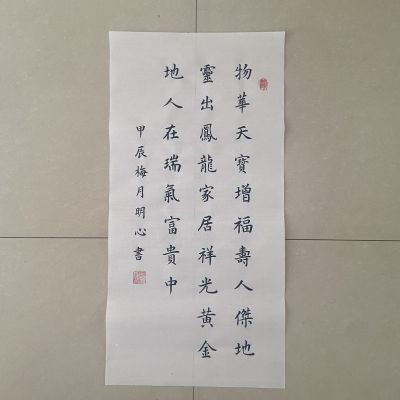 物華天寶增福壽人傑地
靈出鳳龍家居祥光黃金
地人在瑞氣富貴中
甲辰梅月明心書